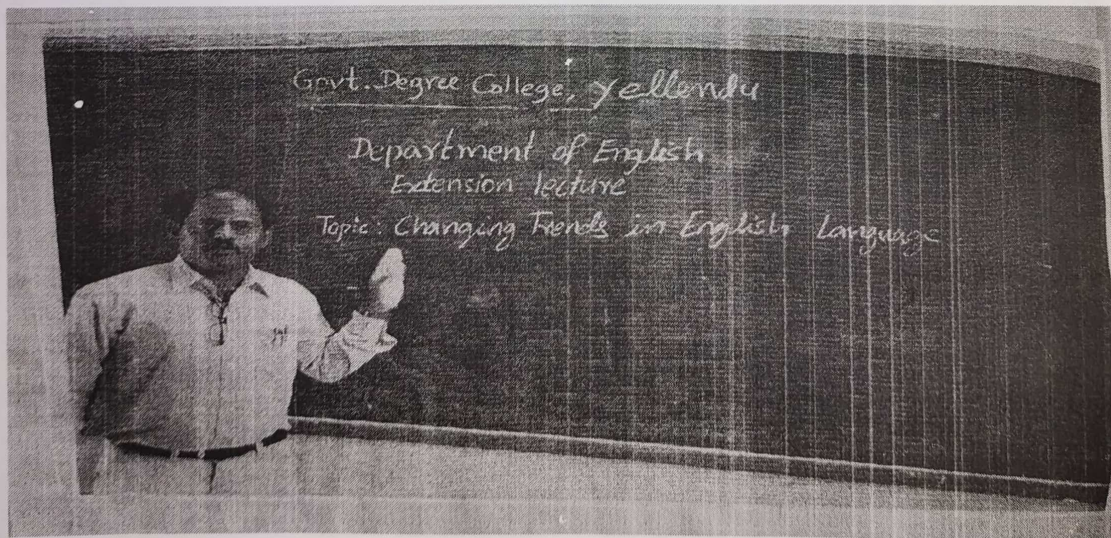 Govt. Degree College, Yellendu
Department of English
Extension lecture
Topic: Changing Trends in English Language